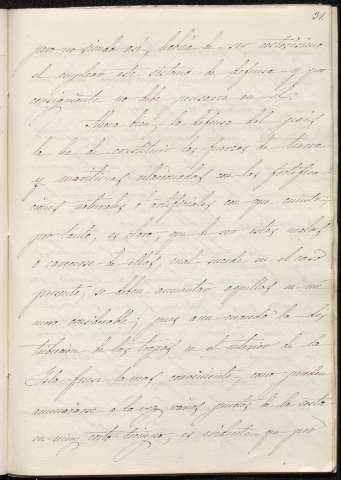 31.
pero no siendo así, habría de ser costosísimo
el emplear este sistema de defensa y por
consiguiente no debe pensarse en él.
Ahora bien, la defensa del país
la ha de constituir las fuerzas de tierra
y marítimas relacionadas con las fortifica
ciones naturales ó artificiales con que cuente;
por tanto, es claro, que de ser estas malas
ó carecerse de ellas, cual sucede en el caso
presente, se deben aumentar aquellas en nú
mero considerable; pues aun cuando la dis
tribucion de las tropas en el interior de la
Isla fuese la mas conveniente, como pueden
amenazarse a la vez varios puntos de la costa
en muy corto tiempo, es evidente que por